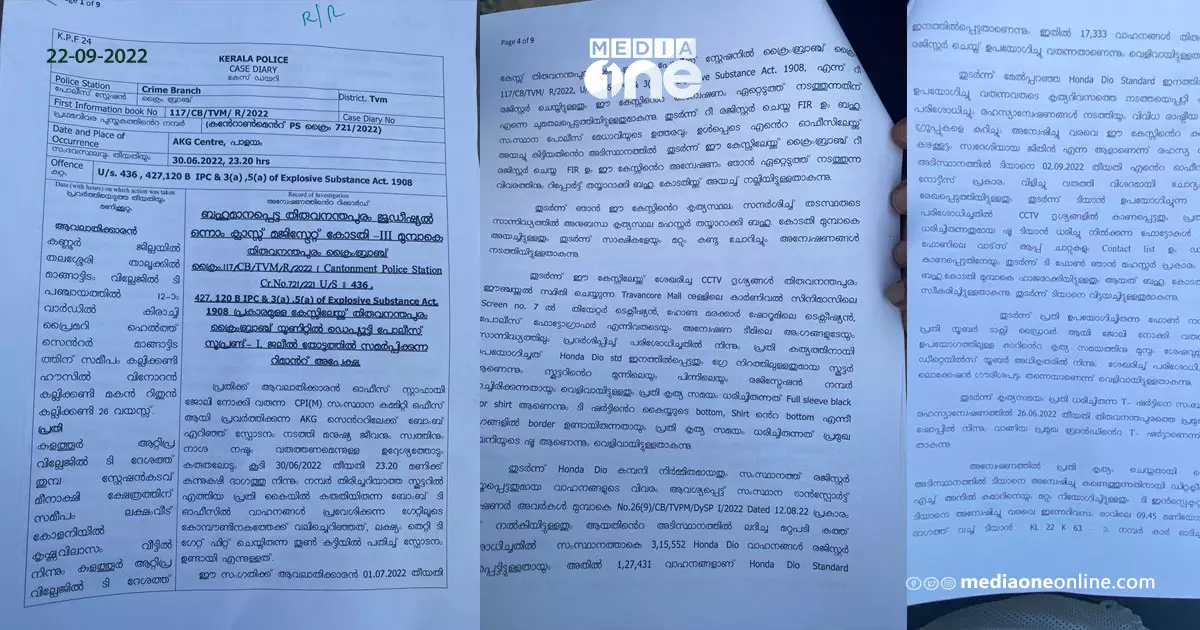 Page 1 of 9
R/R
K.P.F 24
22-09-2022
KERALA POLICE
CASE DIARY
കേസ് ഡയറി
Police Station
പോലീസ് സ്റ്റേഷൻ
Crime Branch
ക്രൈം ബ്രാഞ്ച്
District. Tvm
First Information book No
പ്രഥമവിവര പുസ്തകത്തിൻറെ നമ്പർ
117/CB/TVM/ R/2022
(കൻറോൺമെൻറ് PS ക്രൈം 721/2022)
Case Diary No
Date and Place of
Occurrence
സംഭവസ്ഥലവും തീയതിയും
AKG Centre, പാളയം
30.06.2022, 23.20 hrs
Offence
കുറ്റം
U/s. 436 , 427,120 B IPC & 3(a) ,5(a) of Explosive Substance Act. 1908
Date (with hours) on which action was taken
പ്രവർത്തിയെടുത്ത തീയതിയും
മണിക്കൂറും
Record of Investigation
അന്വേഷണത്തിൻറെ റിക്കാർഡ്
ആവലാതിക്കാരൻ
കണ്ണൂർ ജില്ലയിൽ
തലശ്ശേരി താലൂക്കിൽ
മാങ്ങാട്ടിടം വില്ലേജിൽ ടി
പഞ്ചായത്തിൽ 12-ാം
വാർഡിൽ കിരാച്ചി
പ്രൈമറി ഹെൽത്ത്
സെൻറർ മാങ്ങാട്ടിട
ത്തിന് സമീപം കല്ലിക്കണ്ടി
ഹൗസിൽ വിനോദൻ
കല്ലിക്കണ്ടി മകൻ റിതുൻ
കല്ലിക്കണ്ടി 26 വയസ്സ്.
പ്രതി
കളത്തൂർ ആറ്റിപ്ര
വില്ലേജിൽ ടി ദേശത്ത്
തുമ്പ സ്റ്റേഷൻകടവ്
മീനാക്ഷി ക്ഷേത്രത്തിന്
സമീപം ലക്ഷംവീട്
കോളനിയിൽ
കൃഷ്ണവിലാസം വീട്ടിൽ
നിന്നും കളത്തൂർ ആറ്റിപ്ര
വില്ലേജിൽ ടി ദേശത്ത്
ബഹുമാനപ്പെട്ട തിരുവനന്തപുരം ജുഡീഷ്യൽ
ഒന്നാം ക്ലാസ്സ് മജിസ്ട്രേറ്റ് കോടതി -III മുമ്പാകെ
തിരുവനന്തപുരം ക്രൈംബ്രാഞ്ച്
ക്രൈം.117/CB/TVM/R/2022 ( Cantonment Police Station
Cr.No.721/221 U/S : 436 ,
427, 120 B IPC & 3(a) ,5(a) of Explosive Substance Act.
1908 പ്രകാരമുള്ള കേസ്സിലേയ്ക്ക് തിരുവനന്തപുരം
ക്രൈംബ്രാഞ്ച് യൂണിറ്റിൽ ഡെപ്യൂട്ടി പോലീസ്
സൂപ്രണ്ട്- I. ജലീൽ തോട്ടത്തിൽ സമർപ്പിക്കുന്ന
റിമാൻറ് അപേക്ഷ.
പ്രതിക്ക് ആവലാതിക്കാരൻ ഓഫീസ് സ്റ്റാഫായി
ജോലി നോക്കി വരുന്ന CPI(M) സംസ്ഥാന കമ്മിറ്റി ഓഫീസ്
ആയി പ്രവർത്തിക്കുന്ന AKG സെൻററിലേക്ക് ബോംബ്
എറിഞ്ഞ് സ്ഫോടനം നടത്തി മനുഷ്യ ജീവനും സ്വത്തിനും
നാശ നഷ്ടം വരുത്തണമെന്നുള്ള ഉദ്ദേശ്യത്തോടും
കരുതലോടും കൂടി 30/06/2022 തീയതി 23.20 മണിക്ക്
കുന്നുകുഴി ഭാഗത്തു നിന്നും നമ്പർ തിരിച്ചറിയാത്ത സ്കൂട്ടറിൽ
എത്തിയ പ്രതി കൈയിൽ കരുതിയിരുന്ന ബോംബ് ടി
ഓഫീസിൽ വാഹനങ്ങൾ പ്രവേശിക്കുന്ന ഗേറ്റിലൂടെ
കോമ്പൗണ്ടിനകത്തേക്ക് വലിച്ചെറിഞ്ഞത്, ലക്ഷ്യം തെറ്റി ടി
ഗേറ്റ് ഫിറ്റ് ചെയ്തിരുന്ന തൂൺ കട്ടിയിൽ പതിച്ച് സ്ഫോടനം
ഉണ്ടായി എന്നുള്ളത്.
ഈ സംഗതിക്ക് ആവലാതിക്കാരൻ 01.07.2022 തീയതി
Page 4 of 9
MEDIA
one
കേസ്സ് തിരുവനന്തപുരം സ്റ്റേഷനിൽ ക്രൈംബ്രാഞ്ച് ക്രൈം
117/CB/TVM/ R/2022, Explosive Substance Act. 1908, എന്ന് റീ
രജിസ്റ്റർ ചെയ്തിട്ടുള്ളതും ഈ കേസ്സിൻറെ അന്വേഷണം ഏറ്റെടുത്ത് നടത്തുന്നതിന്
എന്നെ ചുമതലപ്പെടുത്തിയിട്ടുള്ളതുമാകുന്നു. തുടർന്ന് റീ രജിസ്റ്റർ ചെയ്ത FIR ഉം ബഹു
സംസ്ഥാന പോലീസ് മേധാവിയുടെ ഉത്തരവും ഉൾപ്പെടെ എൻറെ ഓഫീസിലേയ്ക്ക്
അയച്ചു കിട്ടിയതിൻറെ അടിസ്ഥാനത്തിൽ തുടർന്ന് ഈ കേസ്സിലേയ്ക്ക് ക്രൈംബ്രാഞ്ച് റീ
രജിസ്റ്റർ ചെയ്ത FIR ഉം കേസ്സിൻറെ അന്വേഷണം ഞാൻ ഏറ്റെടുത്ത് നടത്തുന്ന
വിവരത്തിനും റിപ്പോർട്ട് തയ്യാറാക്കി ബഹു കോടതിയ്ക്ക് അയച്ച് നല്കിയിട്ടുള്ളതാകുന്നു.
തുടർന്ന് ഞാൻ ഈ കേസ്സിൻറെ കൃത്യസ്ഥലം സന്ദർശിച്ച് തടസ്ഥരുടെ
സാന്നിദ്ധ്യത്തിൽ അനുബന്ധ കൃത്യസ്ഥല മഹസ്സർ തയ്യാറാക്കി ബഹു. കോടതി മുമ്പാകെ
അയച്ചിട്ടുള്ളതും തുടർന്ന് സാക്ഷികളേയും മറ്റും കണ്ടു ചോദിച്ചും അന്വേഷണങ്ങൾ
നടത്തിയിട്ടുള്ളതുമാകുന്നു.
തുടർന്ന് ഈ കേസ്സിലേയ്ക്ക് ശേഖരിച്ച CCTV ദൃശ്യങ്ങൾ തിരുവനന്തപുരം
ഈഞ്ചയ്ക്കൽ സ്ഥിതി ചെയ്യുന്ന Travancore Mall നുള്ളിലെ കാർണിവൽ സിനിമാസിലെ
Screen no. 7 ൽ തിയേറ്റർ ടെക്നീഷ്യൻ, ഹോണ്ട മരക്കാർ ഷോറൂമിലെ ടെക്നീഷ്യൻ,
പോലീസ് ഫോട്ടോഗ്രാഫർ എന്നിവരുടെയും അന്വേഷണ ടീമിലെ അംഗങ്ങളുടേയും
സാന്നിദ്ധ്യത്തിലും പ്രദർശിപ്പിച്ച് പരിശോധിച്ചതിൽ നിന്നും പ്രതി കൃത്യത്തിനായി
ഉപയോഗിച്ചത് Honda Dio std ഇനത്തിൽപ്പെട്ടതും ഗ്രേ നിറത്തിലുള്ളതുമായ സ്കൂട്ടർ
ആണെന്നും സ്കൂട്ടറിൻറെ മുന്നിലെയും പിന്നിലെയും രജിസ്ട്രേഷൻ നമ്പർ
വെളിവായിട്ടുള്ളതും പ്രതി കൃത്യ സമയം ധരിച്ചിരുന്നത് Full sleeve black
or shirt ആണെന്നും ടി ഷർട്ടിൻറെ കൈയ്യുടെ bottom, Shirt ൻറെ bottom എന്നീ
ഭാഗങ്ങളിൽ border ഉണ്ടായിരുന്നതായും പ്രതി കൃത്യ സമയം ധരിച്ചിരുന്നത് പ്രമുഖ
കമ്പനിയുടെ ഷൂ ആണെന്നും വെളിവായിട്ടുള്ളതാകുന്നു.
തുടർന്ന് Honda Dio കമ്പനി നിർമ്മിതമായതും സംസ്ഥാനത്ത് രജിസ്റ്റർ
ചെയ്യപ്പെട്ടതുമായ വാഹനങ്ങളുടെ വിവരം ആവശ്യപ്പെട്ട് സംസ്ഥാന ട്രാൻസ്പോർട്ട്
കമ്മീഷണർ അവർകൾ മുമ്പാകെ No.26(9)/CB/TVPM/DySP 1/2022 Dated 12.08.22 പ്രകാരം,
നൽകിയിട്ടുള്ളതും ആയതിൻറെ അടിസ്ഥാനത്തിൽ ലഭിച്ച മറുപടി കത്ത്
പരിശോധിച്ചതിൽ സംസ്ഥാനത്താകെ 3,15,552 Honda Dio വാഹനങ്ങൾ രജിസ്റ്റർ
ചെയ്യപ്പെട്ടിട്ടുള്ളതായും അതിൽ 1,27,431 വാഹനങ്ങളാണ് Honda Dio Standard
ഇനത്തിൽപ്പെട്ടതാണെന്നും ഇതിൽ 17,333 വാഹനങ്ങൾ
രജിസ്റ്റർ ചെയ്ത് ഉപയോഗിച്ചു വരുന്നതാണെന്നും വെളിവായിട്ടുള്ളതാകുന്നു
തുടർന്ന് മേൽപ്പറഞ്ഞ Honda Dio Standard ഇനത്തിൽ
ഉപയോഗിച്ചു വരുന്നവരുടെ കൃത്യദിവസത്തെ നടത്തയെപ്പറ്റി
പരിശോധിച്ചും, രഹസ്യാന്വേഷണങ്ങൾ നടത്തിയും വിവിധ രാഷ്ട്രീയ
ഗ്രൂപ്പുകളെ കുറിച്ചും അന്വേഷിച്ചു വരവെ ഈ കേസ്സിൻറെ
കഴക്കൂട്ടം സ്വദേശിയായ ജിതിൻ എന്ന ആളാണെന്ന് രഹസ്യ
അടിസ്ഥാനത്തിൽ ടിയാനെ 02.09.2022 തീയതി എൻറെ ഓഫീ
നോട്ടീസ് പ്രകാരം വിളിച്ചു വരുത്തി വിശദമായി ചോദ്യം
രേഖപ്പെടുത്തിയിട്ടുള്ളതുമാകുന്നു. തുടർന്ന് ടിയാൻ ഉപയോഗിച്ചു
പരിശോധിച്ചതിൽ CCTV ദൃശ്യങ്ങളിൽ കാണപ്പെട്ടതും
ധരിച്ചിരുന്നതുമായ ഷൂ ടിയാൻ ധരിച്ചു നിൽക്കുന്ന ഫോട്ടോകൾ
ഫോണിലെ വാട്സ് ആപ്പ് ചാറ്റുകളും Contact list ഉം
കാണപ്പെട്ടതിനേയും തുടർന്ന് ടി ഫോൺ ഞാൻ മഹസ്സർ പ്രകാരം
ബഹു കോടതി മുമ്പാകെ ഹാജരാക്കിയിട്ടുള്ളതും ആയത് ബഹു
സ്വീകരിച്ചിട്ടുള്ളതാകുന്നു. തുടർന്ന് ടിയാനെ വിട്ടയച്ചിട്ടുള്ളതുമാകുന്നു.
തുടർന്ന് പ്രതി ഉപയോഗിച്ചിരുന്ന ഫോൺ
പ്രതി യൂബർ ടാക്സി ഡ്രൈവർ ആയി ജോലി നോക്കി
ഉപയോഗത്തിലുള്ള കാറിൻറെ കൃത്യ സമയത്തിനു മുമ്പും ശേഷവും
ഡീറ്റെയിൽസ് യൂബർ അധികൃതരിൽ നിന്നും ശേഖരിച്ച് പരിശോ
ലൊക്കേഷൻ ഗൗരീശപട്ടം തന്നെയാണെന്ന് വെളിവായിട്ടുള്ളതാകുന്നു.
തുടർന്ന് കൃത്യസമയം പ്രതി ധരിച്ചിരുന്ന T- ഷർട്ടിനെ
രഹസ്യാന്വേഷണത്തിൽ 26.06.2022 തീയതി തിരുവനന്തപുരത്തെ
ഷോപ്പിൽ നിന്നും വാങ്ങിയ പ്രമുഖ ബ്രാൻഡിൻറെ T- ഷർട്ടാണെന്ന
താകുന്നു.
അന്വേഷണത്തിൽ പ്രതി കൃത്യം ചെയ്തതായി
അടിസ്ഥാനത്തിൽ ടിയാനെ അന്വേഷിച്ചു കണ്ടെത്തുന്നതിനായി
എച്ച് അനിൽ കുമാറിനെയും മറ്റും നിയോഗിച്ചിട്ടുള്ളതും
ടിയാനെ അന്വേഷിച്ചു വരവെ ഇന്നേദിവസം രാവിലെ 09.45
ഭാഗത്ത് വച്ച് ടിയാൻ KL 22 K 63 - നമ്പർ കാർ
mediaoneonline.com